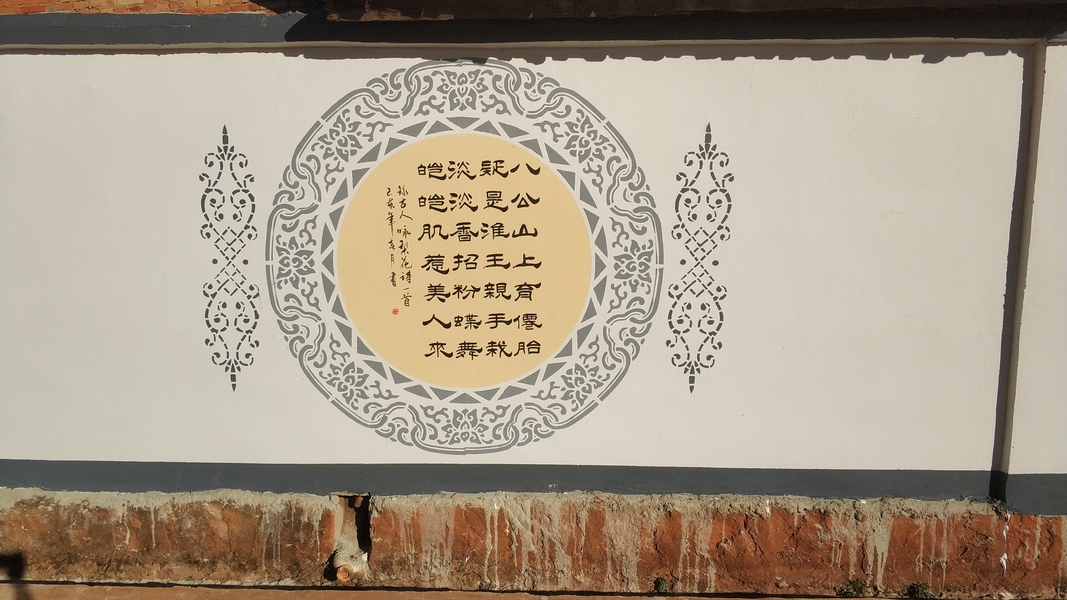 八公山上育僊胎
疑是淮王親手栽
淡淡香招粉蝶舞
皑皑肌惹美人來
录古人咏梨花诗一首
己亥年 月 書